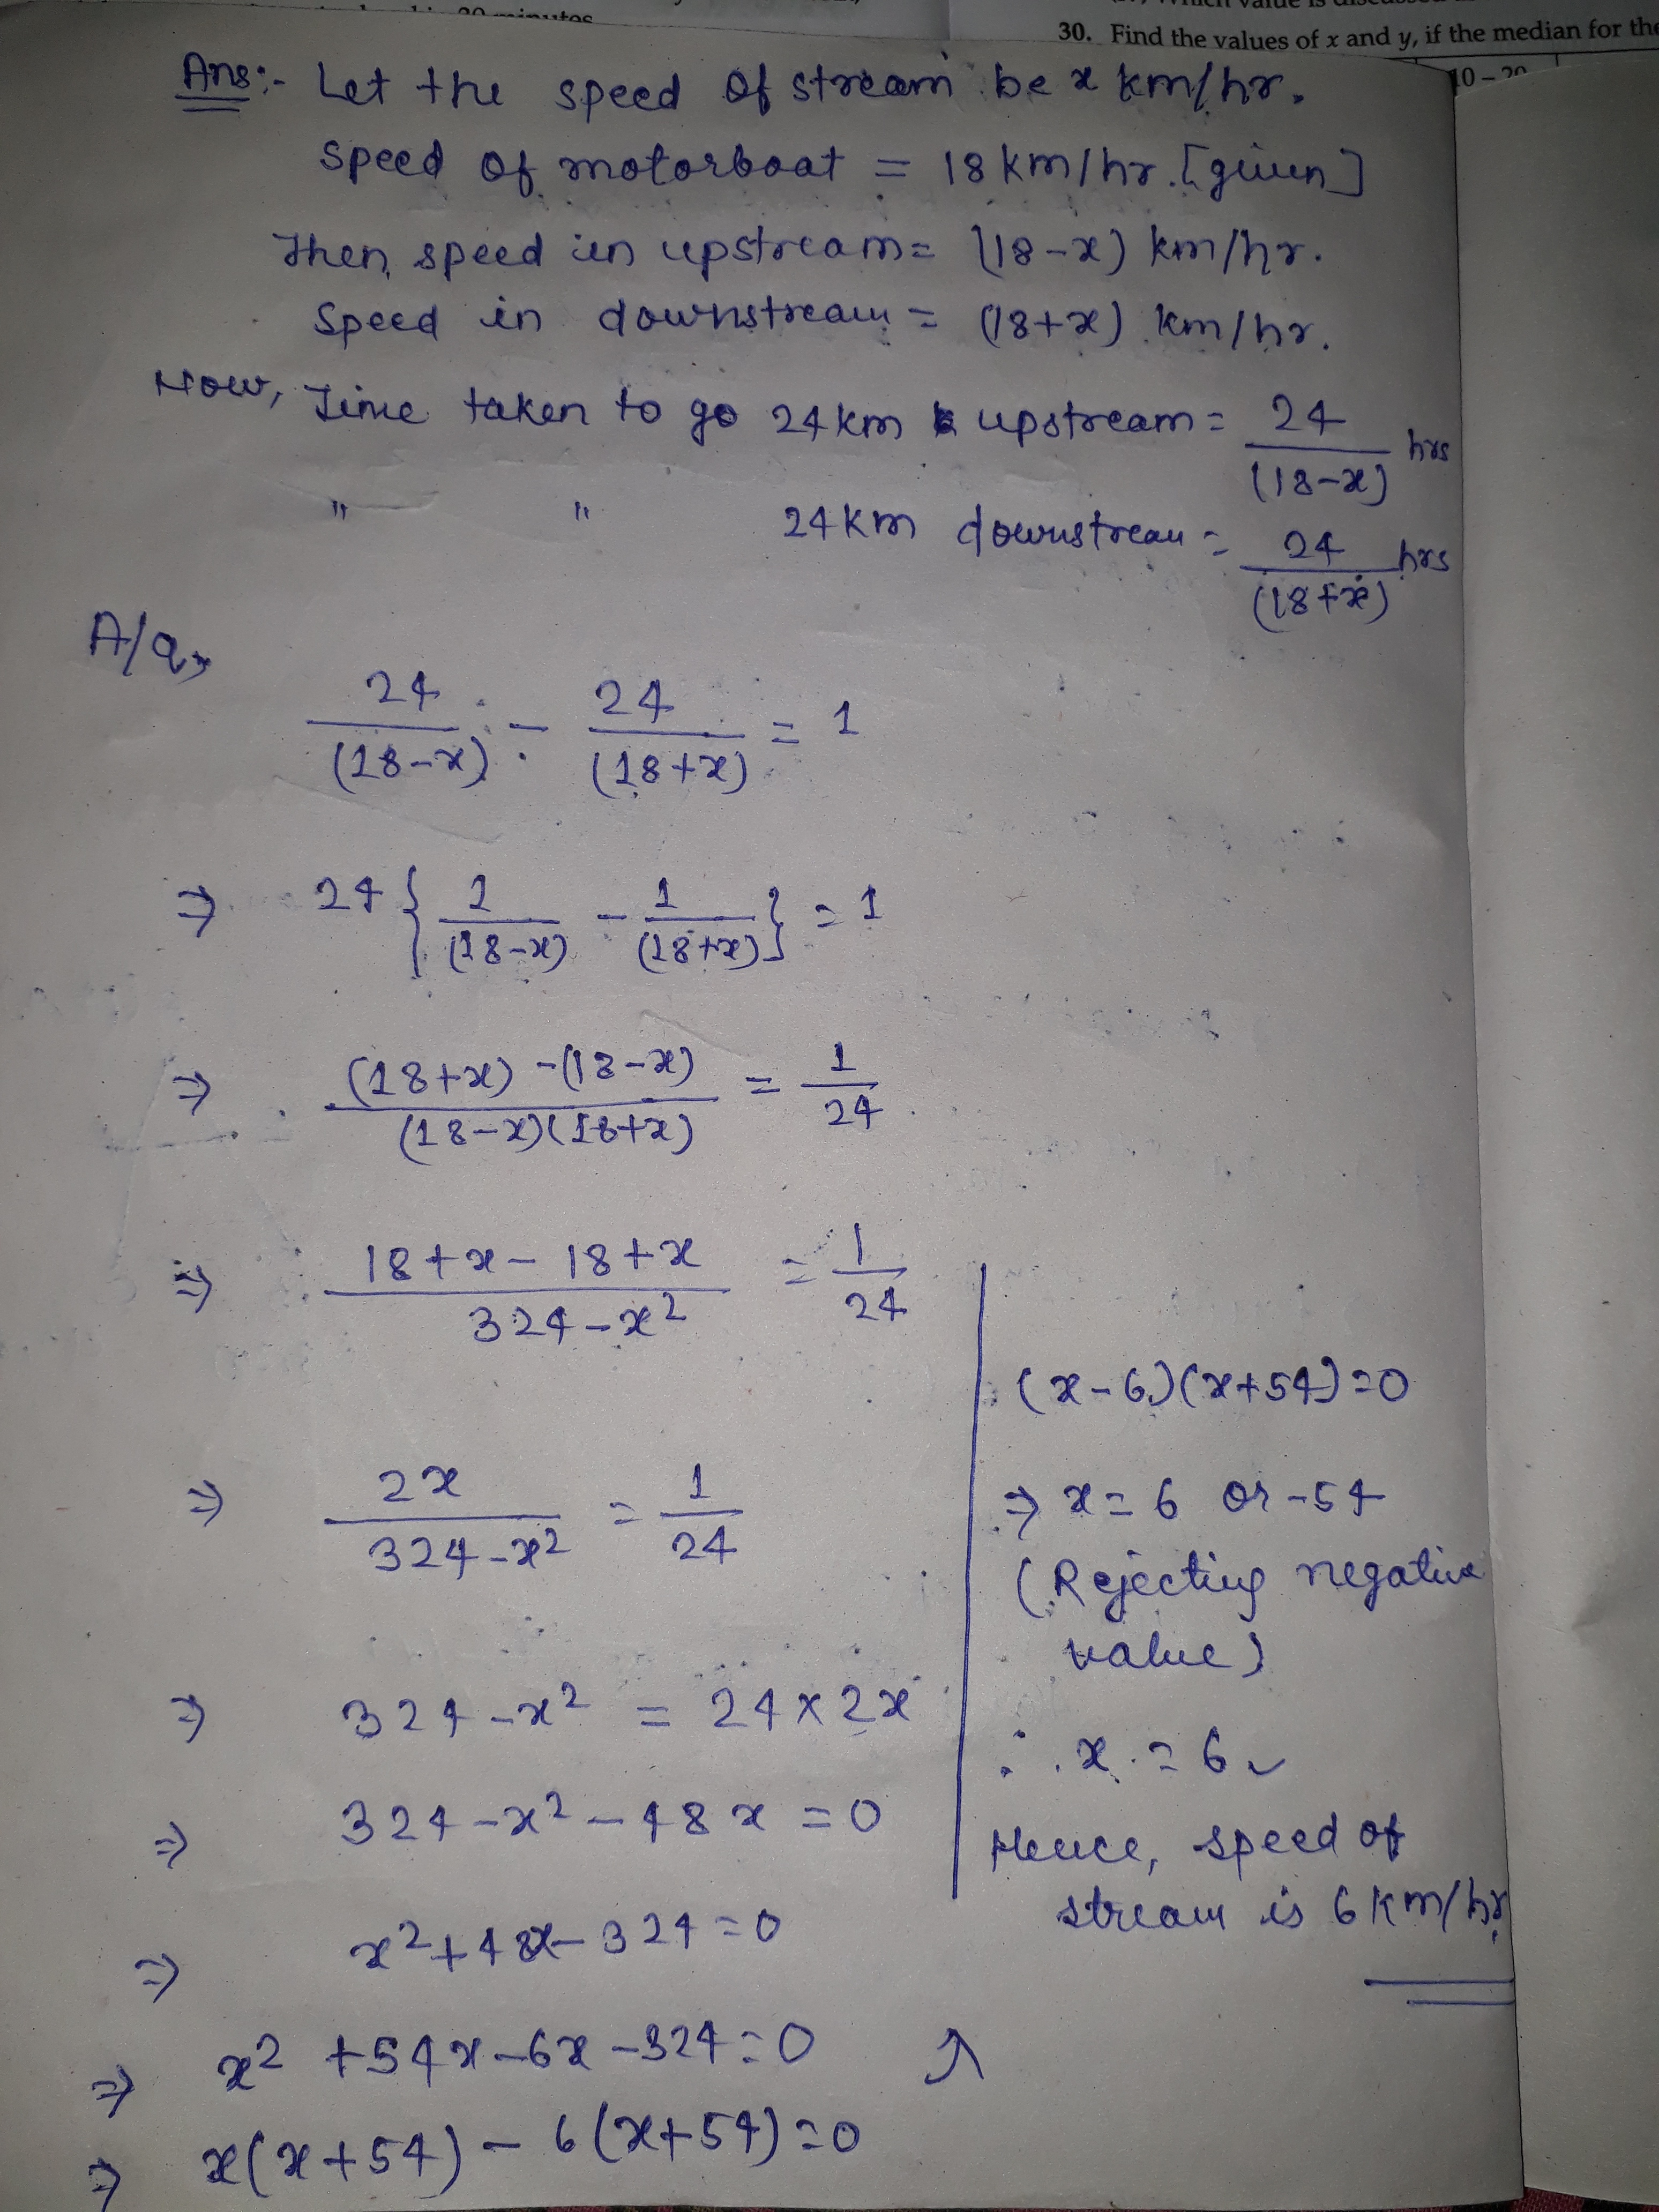 20 minutes
30. Find the values of x and y, if the median for the
10 – 20
Ans:- Let the speed of stream be x km/hr.
Speed of motorboat = 18 km/hr. [given]
Then, speed in upstream = (18-x) km/hr.
Speed in downstream = (18+x) km/hr.
Now, Time taken to go 24 km upstream = 24/(18-x) hrs
" " 24 km downstream = 24/(18+x) hrs
A/q,
24/(18-x) - 24/(18+x) = 1
⇒ 24 {1/(18-x) - 1/(18+x)} = 1
⇒ (18+x) -(18-x)/(18-x)(18+x) = 1/24
⇒ 18+x-18+x/324-x² = 1/24
⇒ 2x/324-x² = 1/24
⇒ 324-x² = 24×2x
⇒ 324-x²-48x = 0
⇒ x²+48x-324=0
⇒ x²+54x-6x-324=0
⇒ x(x+54) - 6(x+54)=0
(x-6)(x+54)=0
⇒ x=6 or -54
(Rejecting negative
value)
∴ x = 6
Hence, speed of
stream is 6 km/hr.